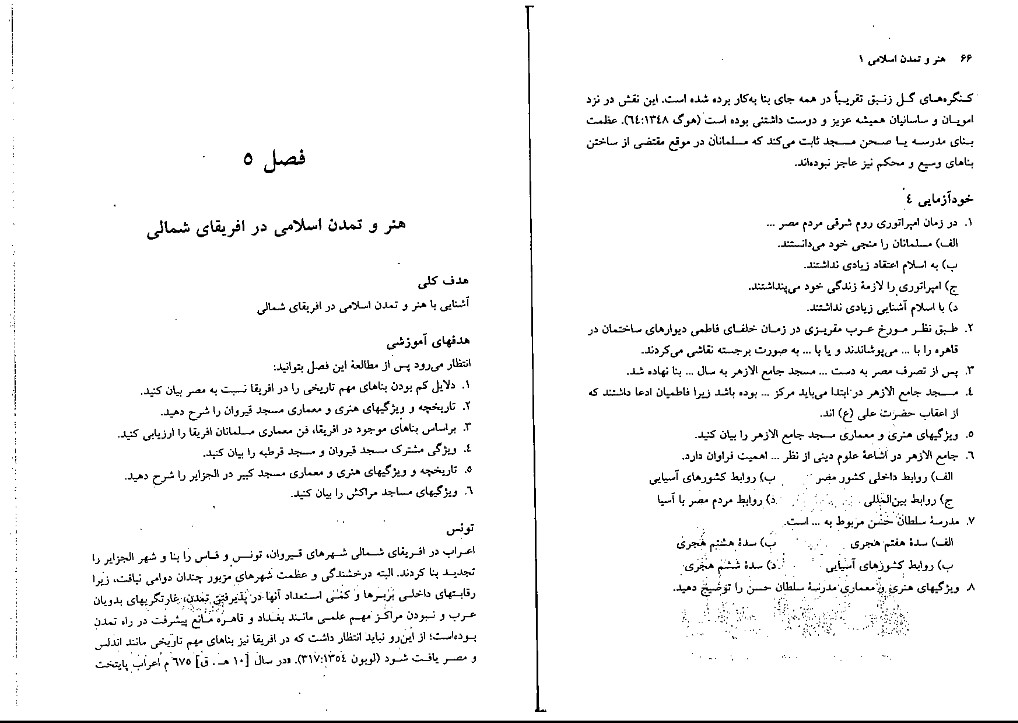 ۶۶ هنر و تمدن اسلامی ۱
کنگره‌های گل زنبق تقریباً در همه جای بنا به‌کار برده شده است. این نقش در نزد
امویان و ساسانیان همیشه عزیز و دوست داشتنی بوده است (هوگ ۶۴:۱۳۴۸). عظمت
بنای مدرسه یا صحن مسجد ثابت می‌کند که مسلمانان در موقع مقتضی از ساختن
بناهای وسیع و محکم نیز عاجز نبوده‌اند.
خودآزمایی ۴
۱. در زمان امپراتوری روم شرقی مردم مصر ...
الف) مسلمانان را منجی خود می‌دانستند.
ب) به اسلام اعتقاد زیادی نداشتند.
ج) امپراتوری را لازمهٔ زندگی خود می‌پنداشتند.
د) با اسلام آشنایی زیادی نداشتند.
۲. طبق نظر مورخ عرب مقریزی در زمان خلفای فاطمی دیوارهای ساختمان در
قاهره را با ... می‌پوشاندند و یا با ... به صورت برجسته نقاشی می‌کردند.
۳. پس از تصرف مصر به دست ... مسجد جامع الازهر به سال ... بنا نهاده شد.
۴. مسجد جامع الازهر در ابتدا می‌باید مرکز ... بوده باشد زیرا فاطمیان ادعا داشتند که
از اعقاب حضرت علی (ع) اند.
۵. ویژگیهای هنری و معماری مسجد جامع الازهر را بیان کنید.
۶. جامع الازهر در اشاعهٔ علوم دینی از نظر ... اهمیت فراوان دارد.
الف) روابط داخلی کشور مصر ب) روابط کشورهای آسیایی
ج) روابط بین‌المللی د) روابط مردم مصر با آسیا
۷. مدرسهٔ سلطان حسن مربوط به ... است.
الف) سدهٔ هفتم هجری ب) سدهٔ هشتم هجری
ب) روابط کشورهای آسیایی د) سدهٔ ششم هجری
۸ ویژگیهای هنری و معماری مدرسهٔ سلطان حسن را توضیح دهید.
فصل ۵
هنر و تمدن اسلامی در افریقای شمالی
هدف کلی
آشنایی با هنر و تمدن اسلامی در افریقای شمالی
هدفهای آموزشی
انتظار می‌رود پس از مطالعهٔ این فصل بتوانید:
۱. دلایل کم بودن بناهای مهم تاریخی را در افریقا نسبت به مصر بیان کنید.
۲. تاریخچه و ویژگیهای هنری و معماری مسجد قیروان را شرح دهید.
۳. براساس بناهای موجود در افریقا، فن معماری مسلمانان افریقا را ارزیابی کنید.
۴. ویژگی مشترک مسجد قیروان و مسجد قرطبه را بیان کنید.
۵. تاریخچه و ویژگیهای هنری و معماری مسجد کبیر در الجزایر را شرح دهید.
۶. ویژگیهای مساجد مراکش را بیان کنید.
تونس
اعراب در افریقای شمالی شهرهای قیروان، تونس و فاس را بنا و شهر الجزایر را
تجدید بنا کردند. البته درخشندگی و عظمت شهرهای مزبور چندان دوامی نیافت، زیرا
رقابتهای داخلی بربرها و کمی استعداد آنها در پذیرفتن تمدن، غارتگریهای بدویان
عرب و نبودن مراکز مهم علمی مانند بغداد و قاهره مانع پیشرفت در راه تمدن
بوده‌است؛ از این‌رو نباید انتظار داشت که در افریقا نیز بناهای مهم تاریخی مانند اندلس
و مصر یافت شود (لوبون ۳۱۷:۱۳۵۴). «در سال [۱۰ هـ . ق] ۶۷۵ م اعراب پایتخت